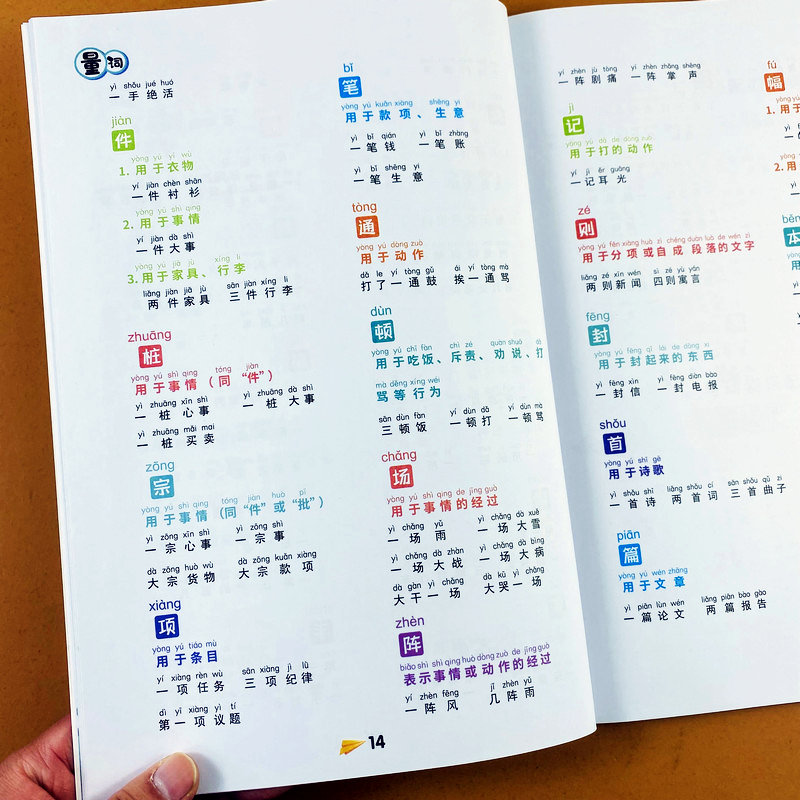 量词
yì shǒu jué huó
一手绝活
jiàn
件
yòng yú yī wù
1. 用于衣物
yí jiàn chèn shān
一件衬衫
yòng yú shì qing
2. 用于事情
yí jiàn dà shì
一件大事
yòng yú jiā jù xíng li
3. 用于家具、行李
liǎng jiàn jiā jù sān jiàn xíng li
两件家具 三件行李
zhuāng
桩
yòng yú shì qing tóng jiàn
用于事情（同“件”）
yì zhuāng xīn shì yì zhuāng dà shì
一桩心事 一桩大事
yì zhuāng mǎi mai
一桩买卖
zōng
宗
yòng yú shì qing tóng jiàn huò pī
用于事情（同“件”或“批”）
yì zōng xīn shì yì zōng shì
一宗心事 一宗事
dà zōng huò wù dà zōng kuǎn xiàng
大宗货物 大宗款项
xiàng
项
yòng yú tiáo mù
用于条目
yí xiàng rèn wù sān xiàng jì lǜ
一项任务 三项纪律
dì yī xiàng yì tí
第一项议题
bǐ
笔
yòng yú kuǎn xiàng shēng yi
用于款项、生意
yì bǐ qián yì bǐ zhàng
一笔钱 一笔账
yì bǐ shēng yi
一笔生意
tòng
通
yòng yú dòng zuò
用于动作
dǎ le yí tòng gǔ ái yí tòng mà
打了一通鼓 挨一通骂
dùn
顿
yòng yú chī fàn chì zé quàn shuō
用于吃饭、斥责、劝说、打
mà děng xíng wéi
骂等行为
sān dùn fàn yí dùn dǎ yí dùn mà
三顿饭 一顿打 一顿骂
chǎng
场
yòng yú shì qing de jīng guò
用于事情的经过
yì chǎng yǔ yì chǎng dà xuě
一场雨 一场大雪
yì chǎng dà zhàn yì chǎng dà bìng
一场大战 一场大病
dà gàn yì chǎng dà kū yì chǎng
大干一场 大哭一场
zhèn
阵
biǎo shì shì qing huò dòng zuò de jīng guò
表示事情或动作的经过
yí zhèn fēng jǐ zhèn yǔ
一阵风 几阵雨
14
yí zhèn jù tòng yí zhèn zhǎng shēng
一阵剧痛 一阵掌声
jì
记
yòng yú dǎ de dòng zuò
用于打的动作
yí jì ěr guāng
一记耳光
zé
则
yòng yú fēn xiàng huò zì chéng duàn luò de wén zì
用于分项或自成段落的文字
liǎng zé xīn wén sì zé yù yán
两则新闻 四则寓言
fēng
封
yòng yú fēng qǐ lái de dōng xi
用于封起来的东西
yì fēng xìn yì fēng diàn bào
一封信 一封电报
shǒu
首
yòng yú shī gē
用于诗歌
yì shǒu shī liǎng shǒu cí sān shǒu qǔ zi
一首诗 两首词 三首曲子
piān
篇
yòng yú wén zhāng
用于文章
yì piān lùn wén liǎng piān bào gào
一篇论文 两篇报告
fú
幅
1. 用
2. 用
běn
本